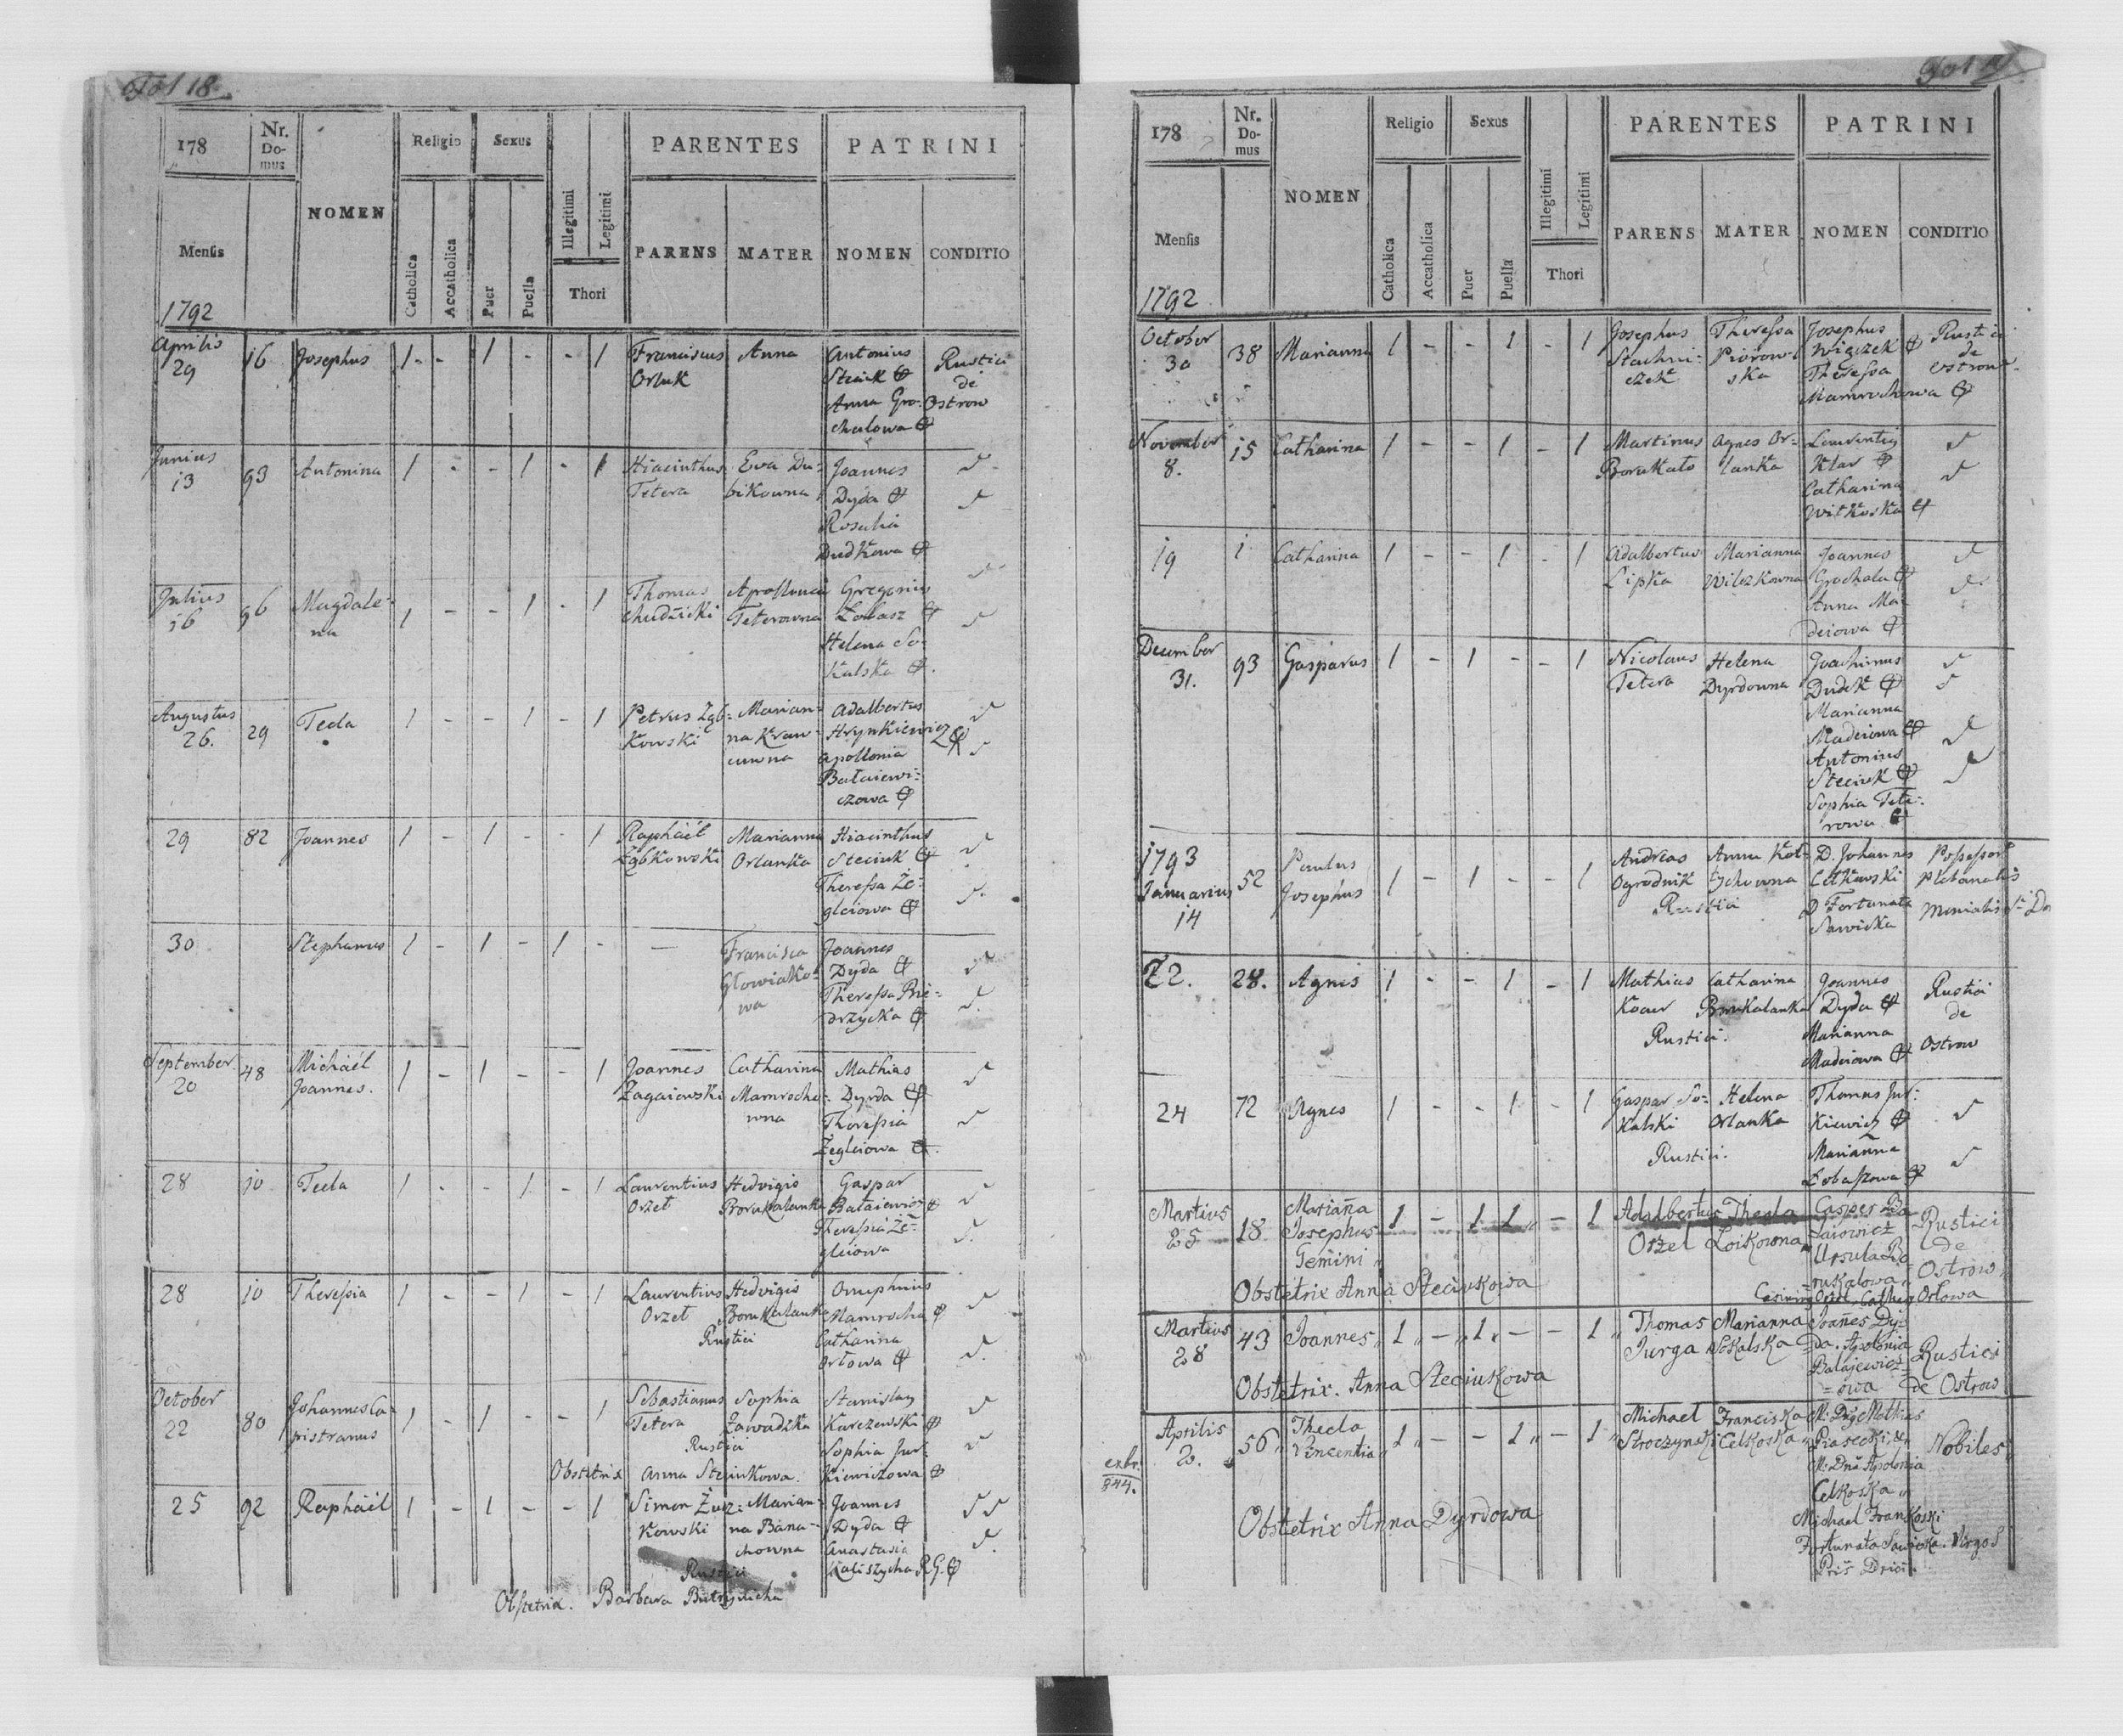 Fol 18.
178
Nr. Domus
NOMEN
Religio
Sexus
Illegitimi
Legitimi
PARENTES
PATRINI
Mensis
Catholica
Accatholica
Puer
Puella
Thori
PARENS
MATER
NOMEN
CONDITIO
1792
Aprilis 29 16 Josephus 1 - - 1 - - 1 Franciscus Orluk Anna Antonius Steciuk ♀ Anna Grochalowa Rustici de Ostrow
Junius 13 93 Antonina 1 - - 1 - 1 Hiacinthus Tetera Eva Dubikowna Joannes Dyda Rosalia Dudkowa
Julius 16 96 Magdalena 1 - - 1 - 1 Thomas Chudzicki Apollonia Teterowna Gregorius Lobasz Helena Sokalska
Augustus 26. 29 Tecla 1 - - 1 - 1 Petrus Ząbkowski Marianna Adalbertus Hrynkiewicz Apollonia Bałaiewiczowa
29 82 Joannes 1 - 1 - - 1 Raphaël Ząbkowski Marianna Orlanka Hiacinthus Steciuk Theressa Żegleiowa
30 Stephanus 1 - 1 - 1 - — Francisca Joannes Dyda Theressa
September 20 48 Michaël Joannes. 1 - 1 - - 1 Joannes Zagaiewski Catharina Mamrochowna Mathias Dyrda Theressia Żegleiowa
28 10 Tecla 1 - - 1 - 1 Laurentius Orzeł Hedvigis Borukalanka Gaspar Bałaiewicz Theressia Żegleiowa
28 10 Theressia 1 - - 1 - 1 Laurentius Orzeł Hedvigis Borukalanka Rustici Onuphrius Mamrocha Catharina Orłowa
October 22 80 Johannes Capistranus 1 - 1 - - 1 Sebastianus Tetera Sophia Zawadzka Rustici Stanislaus Karczewski Sophia Jurkiewiczowa
Obstetrix Anna Steciukowa.
25 92 Raphaël 1 - 1 - - 1 Simon Marianna Banachowna Rustici Joannes Dyda Anastasia Kaliszycha
Obstetrix. Barbara
178
Nr. Domus
NOMEN
Religio
Sexus
Illegitimi
Legitimi
PARENTES
PATRINI
Mensis
Catholica
Accatholica
Puer
Puella
Thori
PARENS
MATER
NOMEN
CONDITIO
1792
October 30 38 Marianna 1 - - 1 - 1 Josephus Stachniczek Theressa Piorowska Josephus Wiączek Theressa Mamrochowa Rustici de
November 8. 15 Catharina 1 - - 1 - 1 Martinus Borukało Agnes Orlanka Klar Catharina Witkoska
19 1 Catharina 1 - - 1 - 1 Adalbertus Lipka Marianna Wilczkowna Joannes Grochala Anna Madeiowa
December 31. 93 Gasparus 1 - 1 - - 1 Nicolaus Tetera Helena Dyrdowna Joachimus Dudek Marianna Madeiowa Antonius Steciuk Sophia Teterowa
1793
Januarius 14 52 Paulus Josephus 1 - 1 - - 1 Andreas Ogrodnik Anna Rustici D. Johannes Celkowski D Fortunata Sawicka Possessor
22. 28. Agnes 1 - - 1 - 1 Mathias Catharina Borukalanka Rustici. Joannes Dyda Marianna Madeiowa Rustici de Ostrow
24 72 Agnes 1 - - 1 - 1 Gaspar Sokalski Helena Orlanka Rustici. Thomas Jurkiewicz Marianna Lobaszowa
Martius 25 18 Mariana Josephus Gemini 1 - 1 1 - 1 Adalbertus Orzel Thecla Loikowna Casper Ursula Borukalowa Rustici de Ostrow
Obstetrix Anna Steciukowa
Orłowa
Martius 28 43 Joannes 1 - 1 - - 1 Thomas Jurga Marianna Sokalska Joanes Dyda. Apolonia Balajewiczowa Rustici de Ostrow
Obstetrix. Anna Steciukowa
extr. 844.
Aprilis 2. 56 Thecla Vincentia 1 - - 1 - 1 Michael Stroczynski Franciska Celkoska Mathias Piasecki Apolonia Celkoska Nobiles
Michael Frankoski
Fortunata Sawicka. Virgo
Obstetrix Anna Dyrdowa